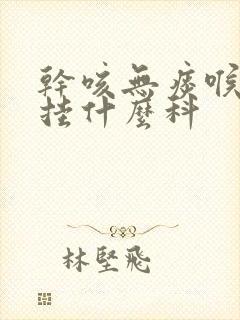 幹咳無痰喉
挂什麼科
林堅飛